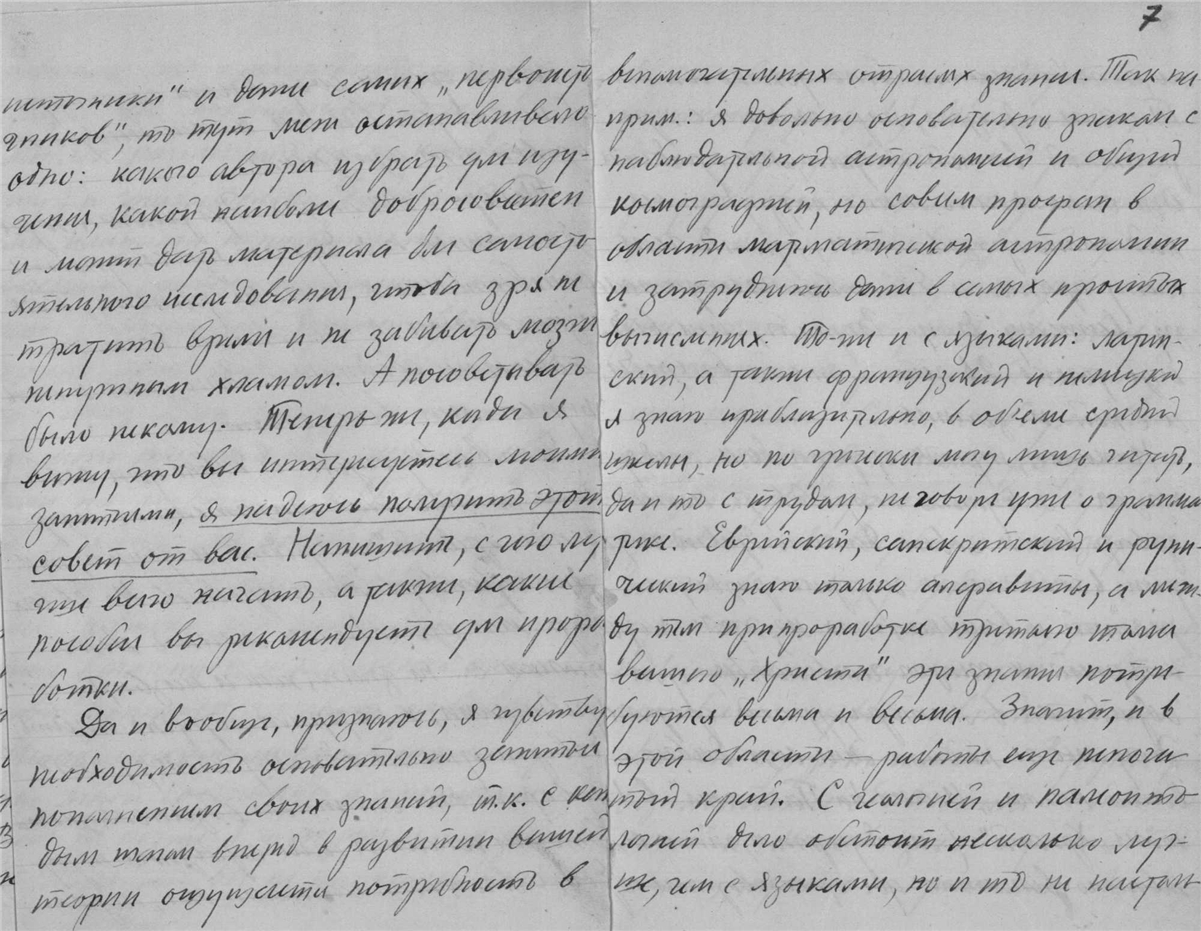 7
источники" и даже самих „первоисто
чников", то тут меня останавливало
одно: какого автора избрать для изу-
чения, какой наиболее добросовестен
и может дать материала для самосто
ятельного исследования, чтобы зря не
тратить время и не забивать мозги
ненужным хламом. А посоветовать
было некому. Теперь же, когда я
вижу, что вы интересуетесь моими
занятиями, я надеюсь получить этот
совет от вас. Напишите, с чего луч
ше всего начать, а также, какие
пособия вы рекомендуете для прора
ботки.
Да и вообще, признаюсь, я чувствую
необходимость основательно заняться
пополнением своих знаний, т.к. с каж
дым шагом вперед в развитии вашей
теории ощущается потребность в
вспомогательных отраслях знания. Так на
прим.: я довольно основательно знаком с
наблюдательной астрономией и общей
космографией, но совсем профан в
области математической астрономии
и затрудняюсь даже в самых простых
вычислениях. То-же и с языками: латин-
ский, а также французский и немецкий
я знаю приблизительно, в объеме средней
школы, но по гречески могу лишь читать,
да и то с трудом, не говоря уже о грамма
тике. Еврейский, санскритский и руни-
ческий знаю только алфавиты, а меж-
ду тем при проработке третьего тома
вашего „Христа" эти знания потре-
буются весьма и весьма. Значит, и в
этой области — работы еще непоча
тый край. С геологией и палеонто
логией дело обстоит несколько луч-
ше, чем с языками, но и то не настоль